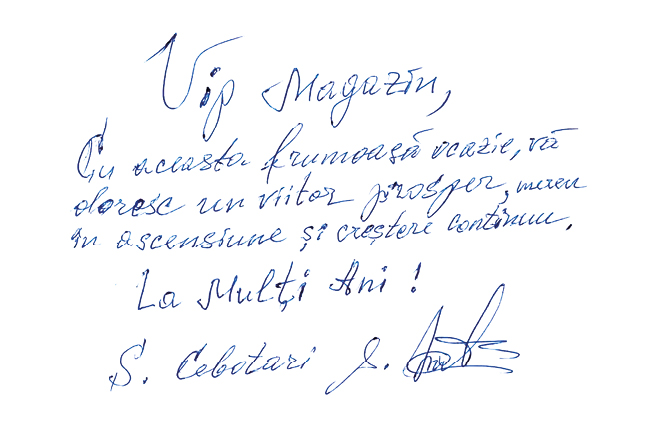 Vip Magazin,
Cu aceasta frumoasă ocazie, vă
doresc un viitor prosper, mereu
în ascensiune și creștere continuu.
La Mulți Ani !
S. Cebotari S.